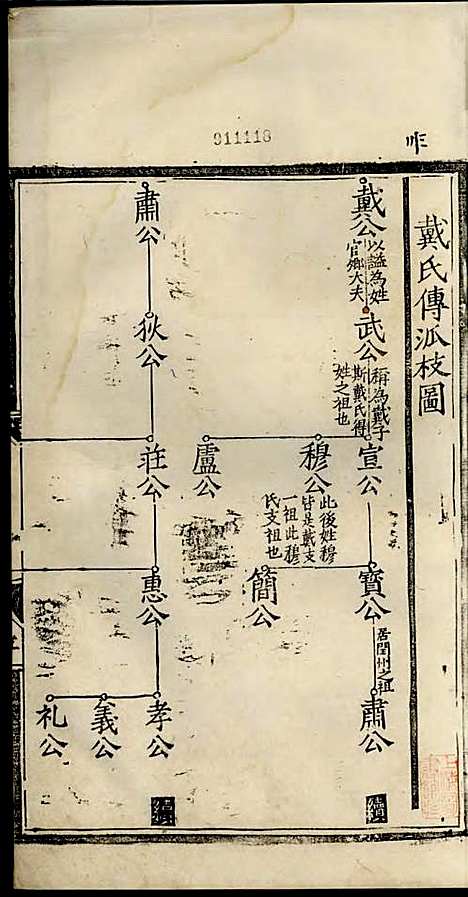 911118
戴氏傳派枝圖
戴公
以謚為姓
官鄉大夫
武公
稱為戴子
斯戴氏得
姓之祖也
宣公
穆公
此後姓穆
皆是戴支
一祖此穆
氏支祖也
盧公
寶公
居閏州之祖
簡公
肅公
續
肅公
狄公
莊公
惠公
孝公
義公
礼公
續